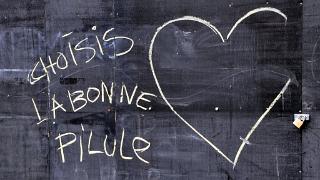 CHOISIS
LA BONNE
PiLULe